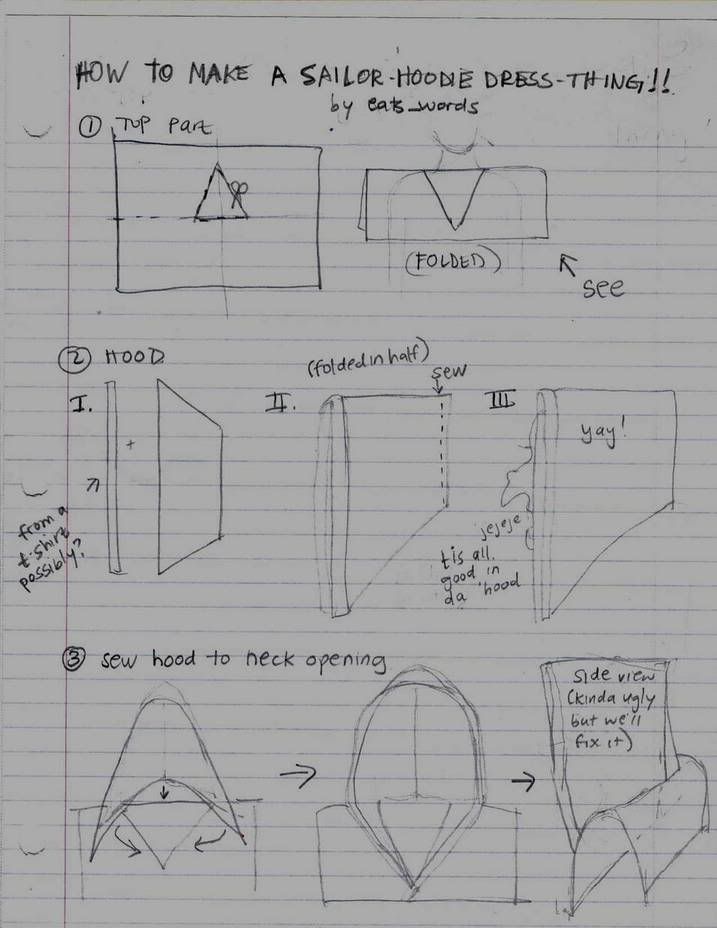 HOW TO MAKE A SAILOR-HOODIE DRESS-THING!!
by eats_words
① TOP part
(FOLDED)
SEE
② HOOD
(folded in half)
sew
I.
II.
III
+
yay!
from a
t-shirt
possibly?
jejeje
tis all
good in
da 'hood
③ sew hood to neck opening
side view
(kinda ugly
but we'll
fix it)